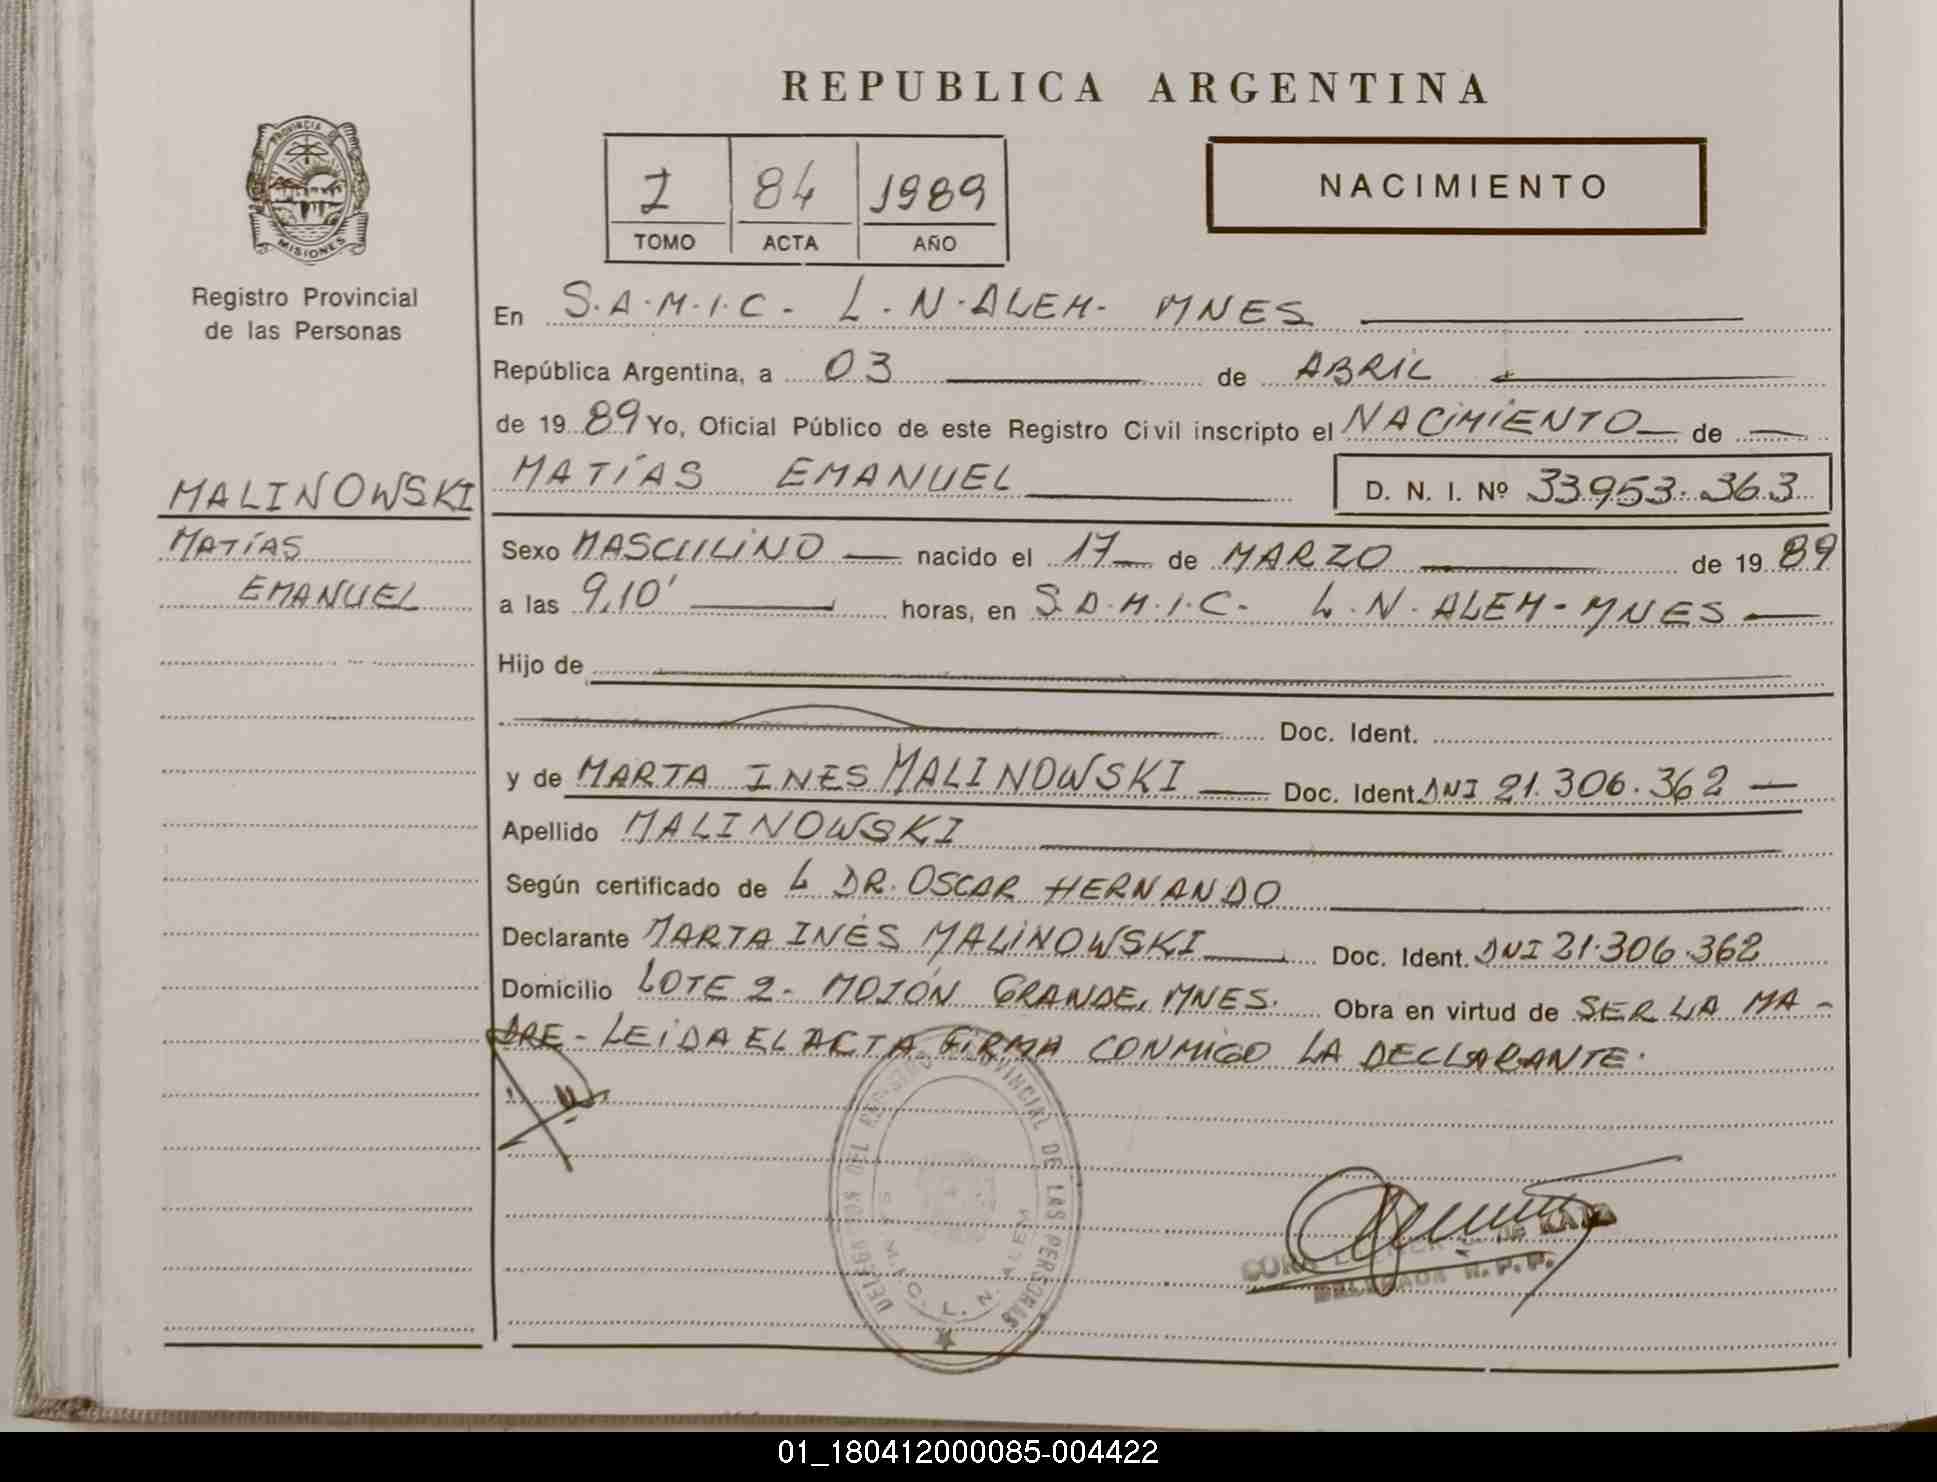 REPUBLICA ARGENTINA
PROVINCIA DE
MISIONES
Registro Provincial
de las Personas
I 84 1989
TOMO ACTA AÑO
NACIMIENTO
En S.A.M.I.C- L.N.ALEM- MNES
República Argentina, a 03 de ABRIL
de 1989 Yo, Oficial Público de este Registro Civil inscripto el NACIMIENTO de
MALINOWSKI
MATÍAS
EMANUEL
MATÍAS EMANUEL D. N. I. Nº 33.953.363
Sexo MASCULINO nacido el 17 de MARZO de 1989
a las 9,10' horas, en S.A.M.I.C- L.N.ALEM-MNES
Hijo de
Doc. Ident.
y de MARTA INES MALINOWSKI Doc. Ident. DNI 21.306.362
Apellido MALINOWSKI
Según certificado de L DR. OSCAR HERNANDO
Declarante MARTA INÉS MALINOWSKI Doc. Ident. DNI 21.306.362
Domicilio LOTE 2- MOJÓN GRANDE, MNES. Obra en virtud de SER LA MA-
DRE- LEIDA EL ACTA FIRMA CONMIGO LA DECLARANTE.
DELEGACION DEL REGISTRO PROVINCIAL DE LAS PERSONAS
S.A.M.I.C. L.N. ALEM
DELEGADA R.P.P.
01_180412000085-004422